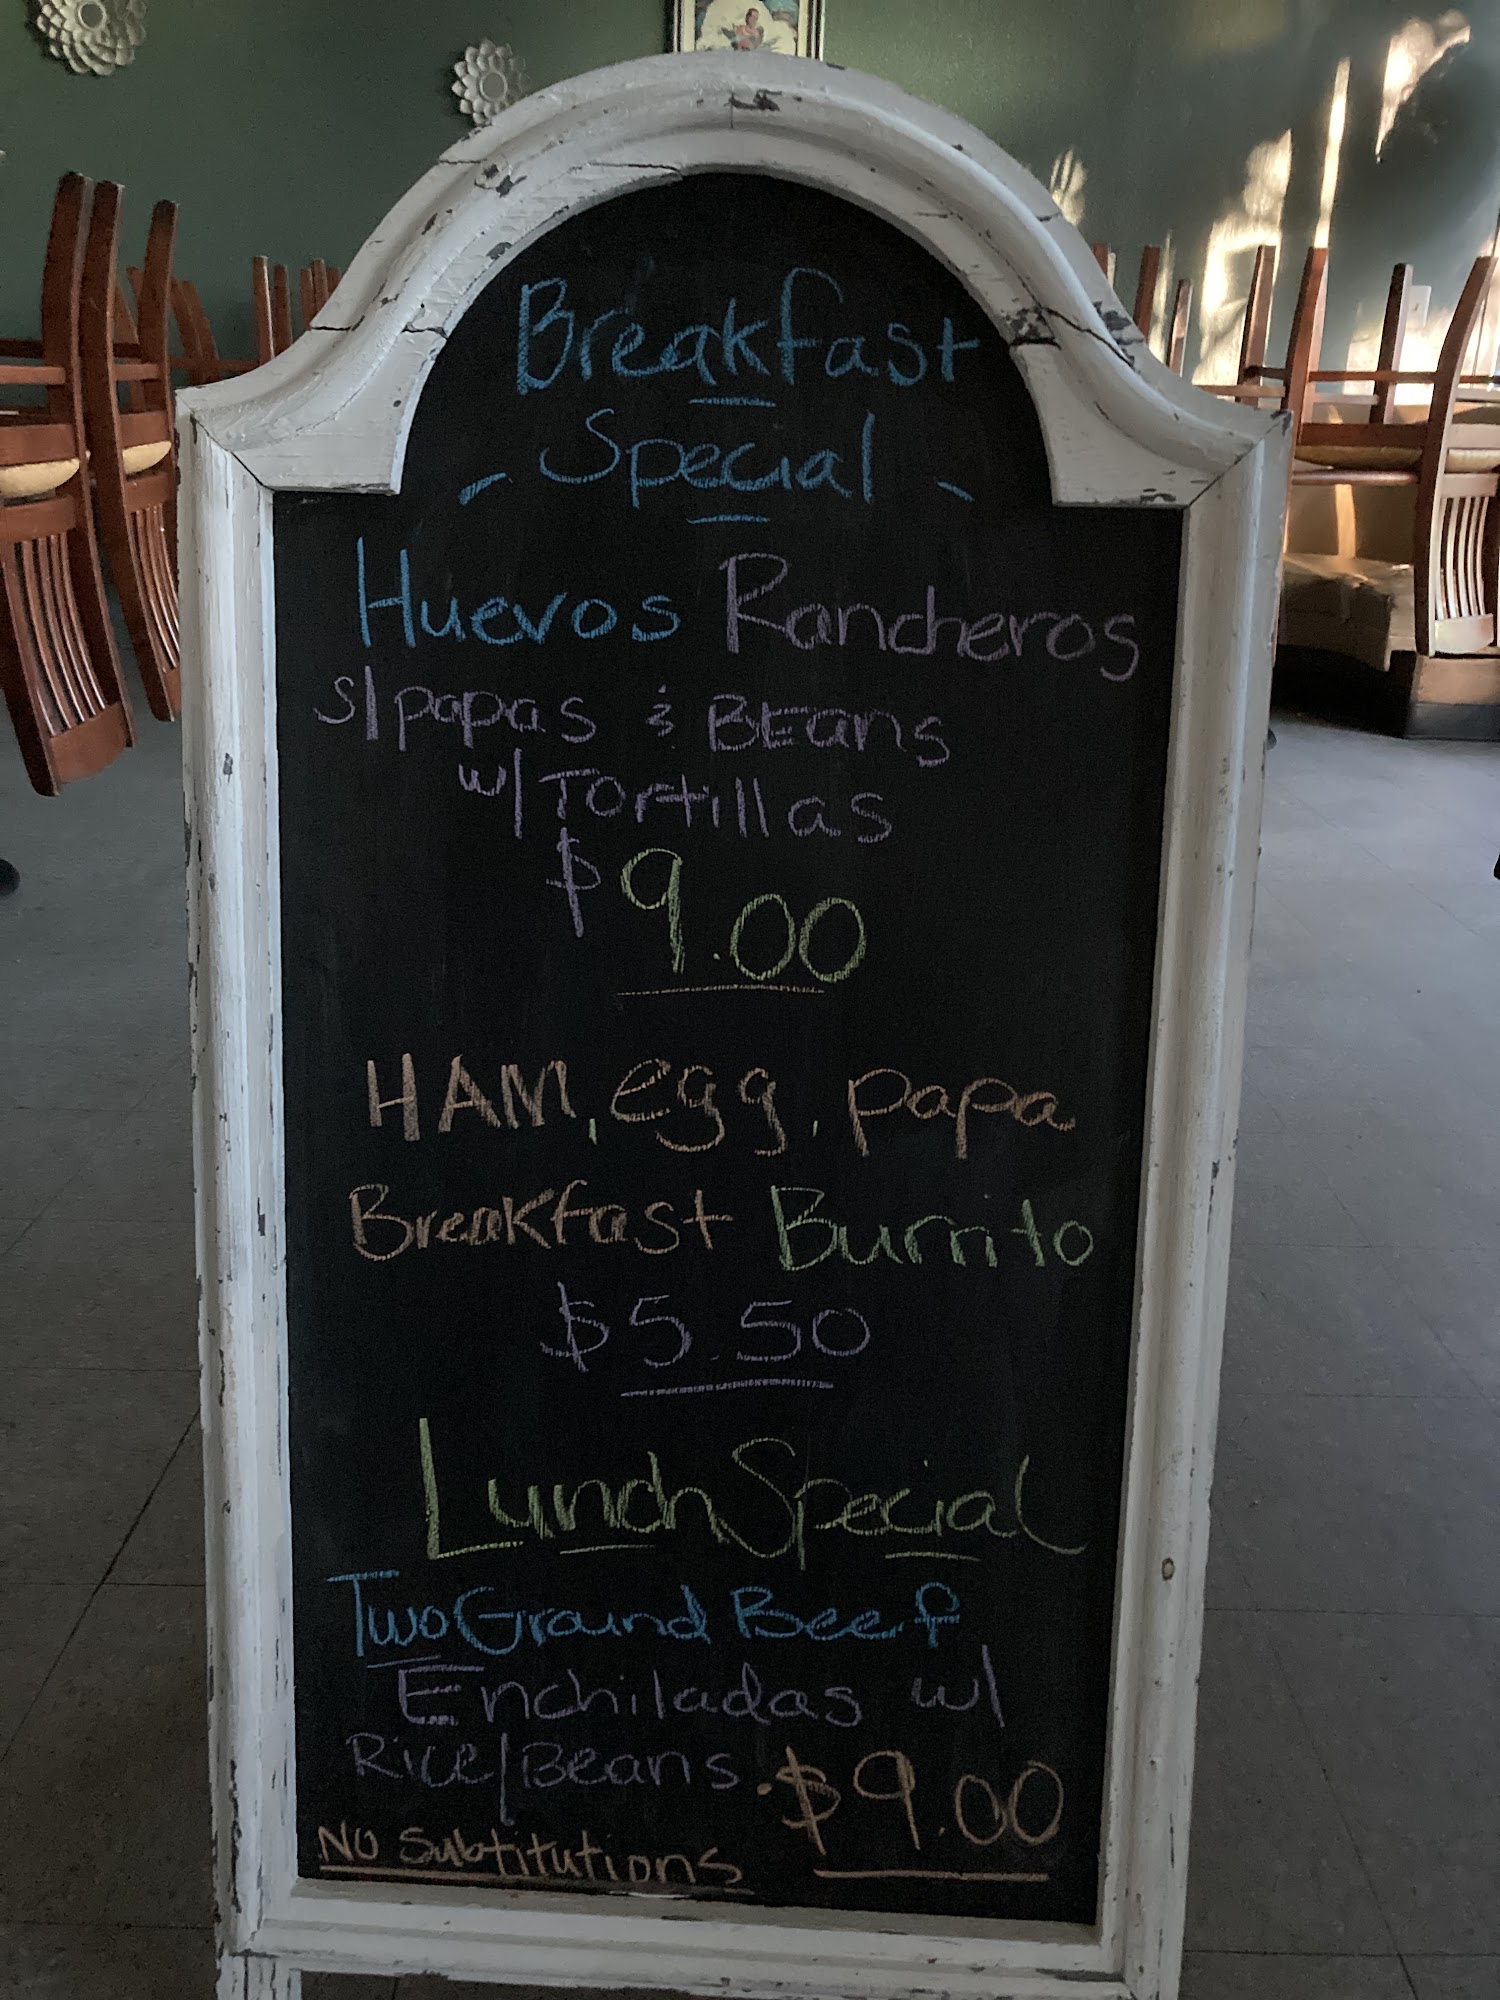 Breakfast
- Special -
Huevos Rancheros
s/papas & BEans
w/Tortillas
$9.00
HAM, egg, papa
Breakfast Burrito
$5.50
Lunch Special
Two Ground Beef
Enchiladas w/
Rice/Beans. $9.00
No Subtitutions